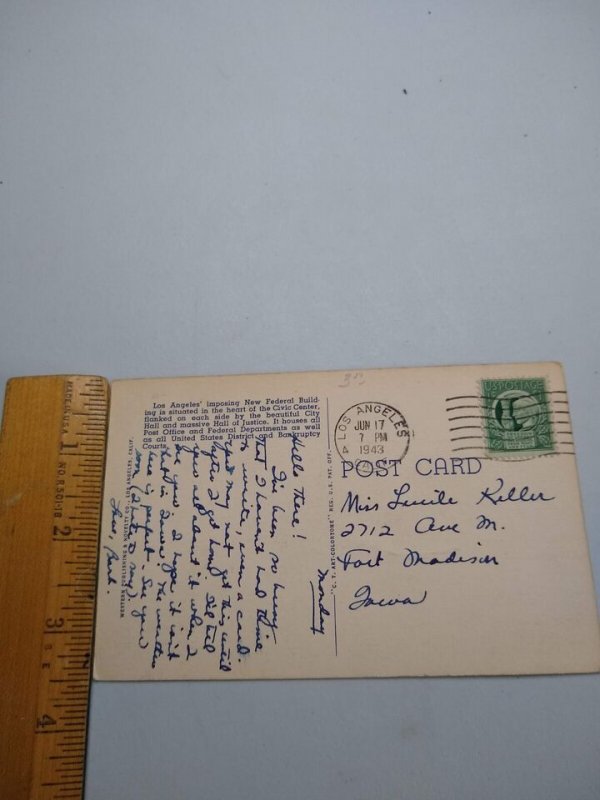 Los Angeles' imposing New Federal Build-
ing is situated in the heart of the Civic Center,
flanked on each side by the beautiful City
Hall and massive Hall of Justice. It houses all
Post Office and Federal Departments as well
as all United States District and Bankruptcy
Courts.
Monday
Hello There!
I've been so busy
that I haven't had time
to write, even a card.
You may not get this until
after I get home. I'll tell
you all about it when I
see you. I hope it isn't
hot in Iowa. The weather
here is perfect. See you
Love, Barb.
"C. T. ART-COLORTONE" REG. U.S. PAT. OFF.
LOS ANGELES
JUN 17
7 PM
1943
U.S. POSTAGE
POST CARD
Miss Lucile Keller
2712 Ave M.
Fort Madison
Iowa
MADE IN U.S.A.
1
2
3
4